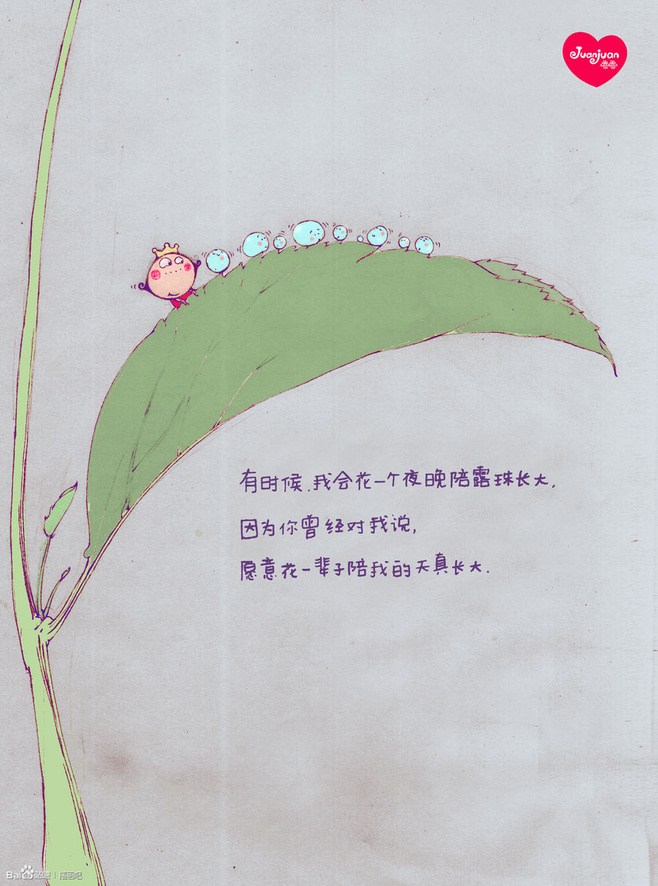 Juanjuan
有时候.我会花一个夜晚陪露珠长大.
因为你曾经对我说,
愿意花一辈子陪我的天真长大.